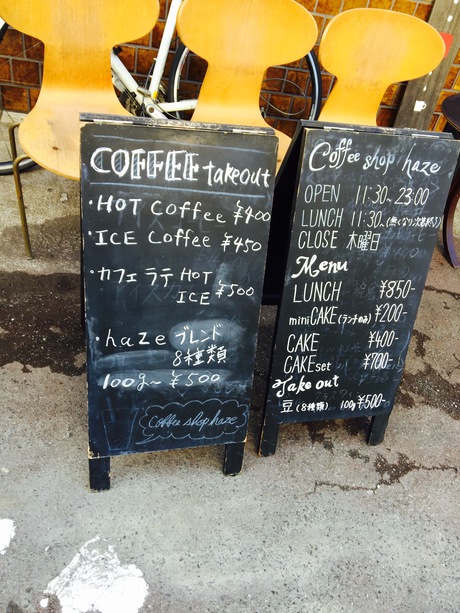 COFFEE takeout
・HOT Coffee ¥400
・ICE Coffee ¥450
・カフェラテ HOT
ICE ¥500
・haze ブレンド
8種類
100g〜 ¥500
Coffee shop haze
Coffee shop haze
OPEN 11:30~23:00
LUNCH 11:30~(無くなり次第終了)
CLOSE 木曜日
Menu
LUNCH ¥850-
miniCAKE(ランチのみ) ¥200-
CAKE ¥400-
CAKEset ¥700-
Take out
豆(8種類) 100g ¥500-